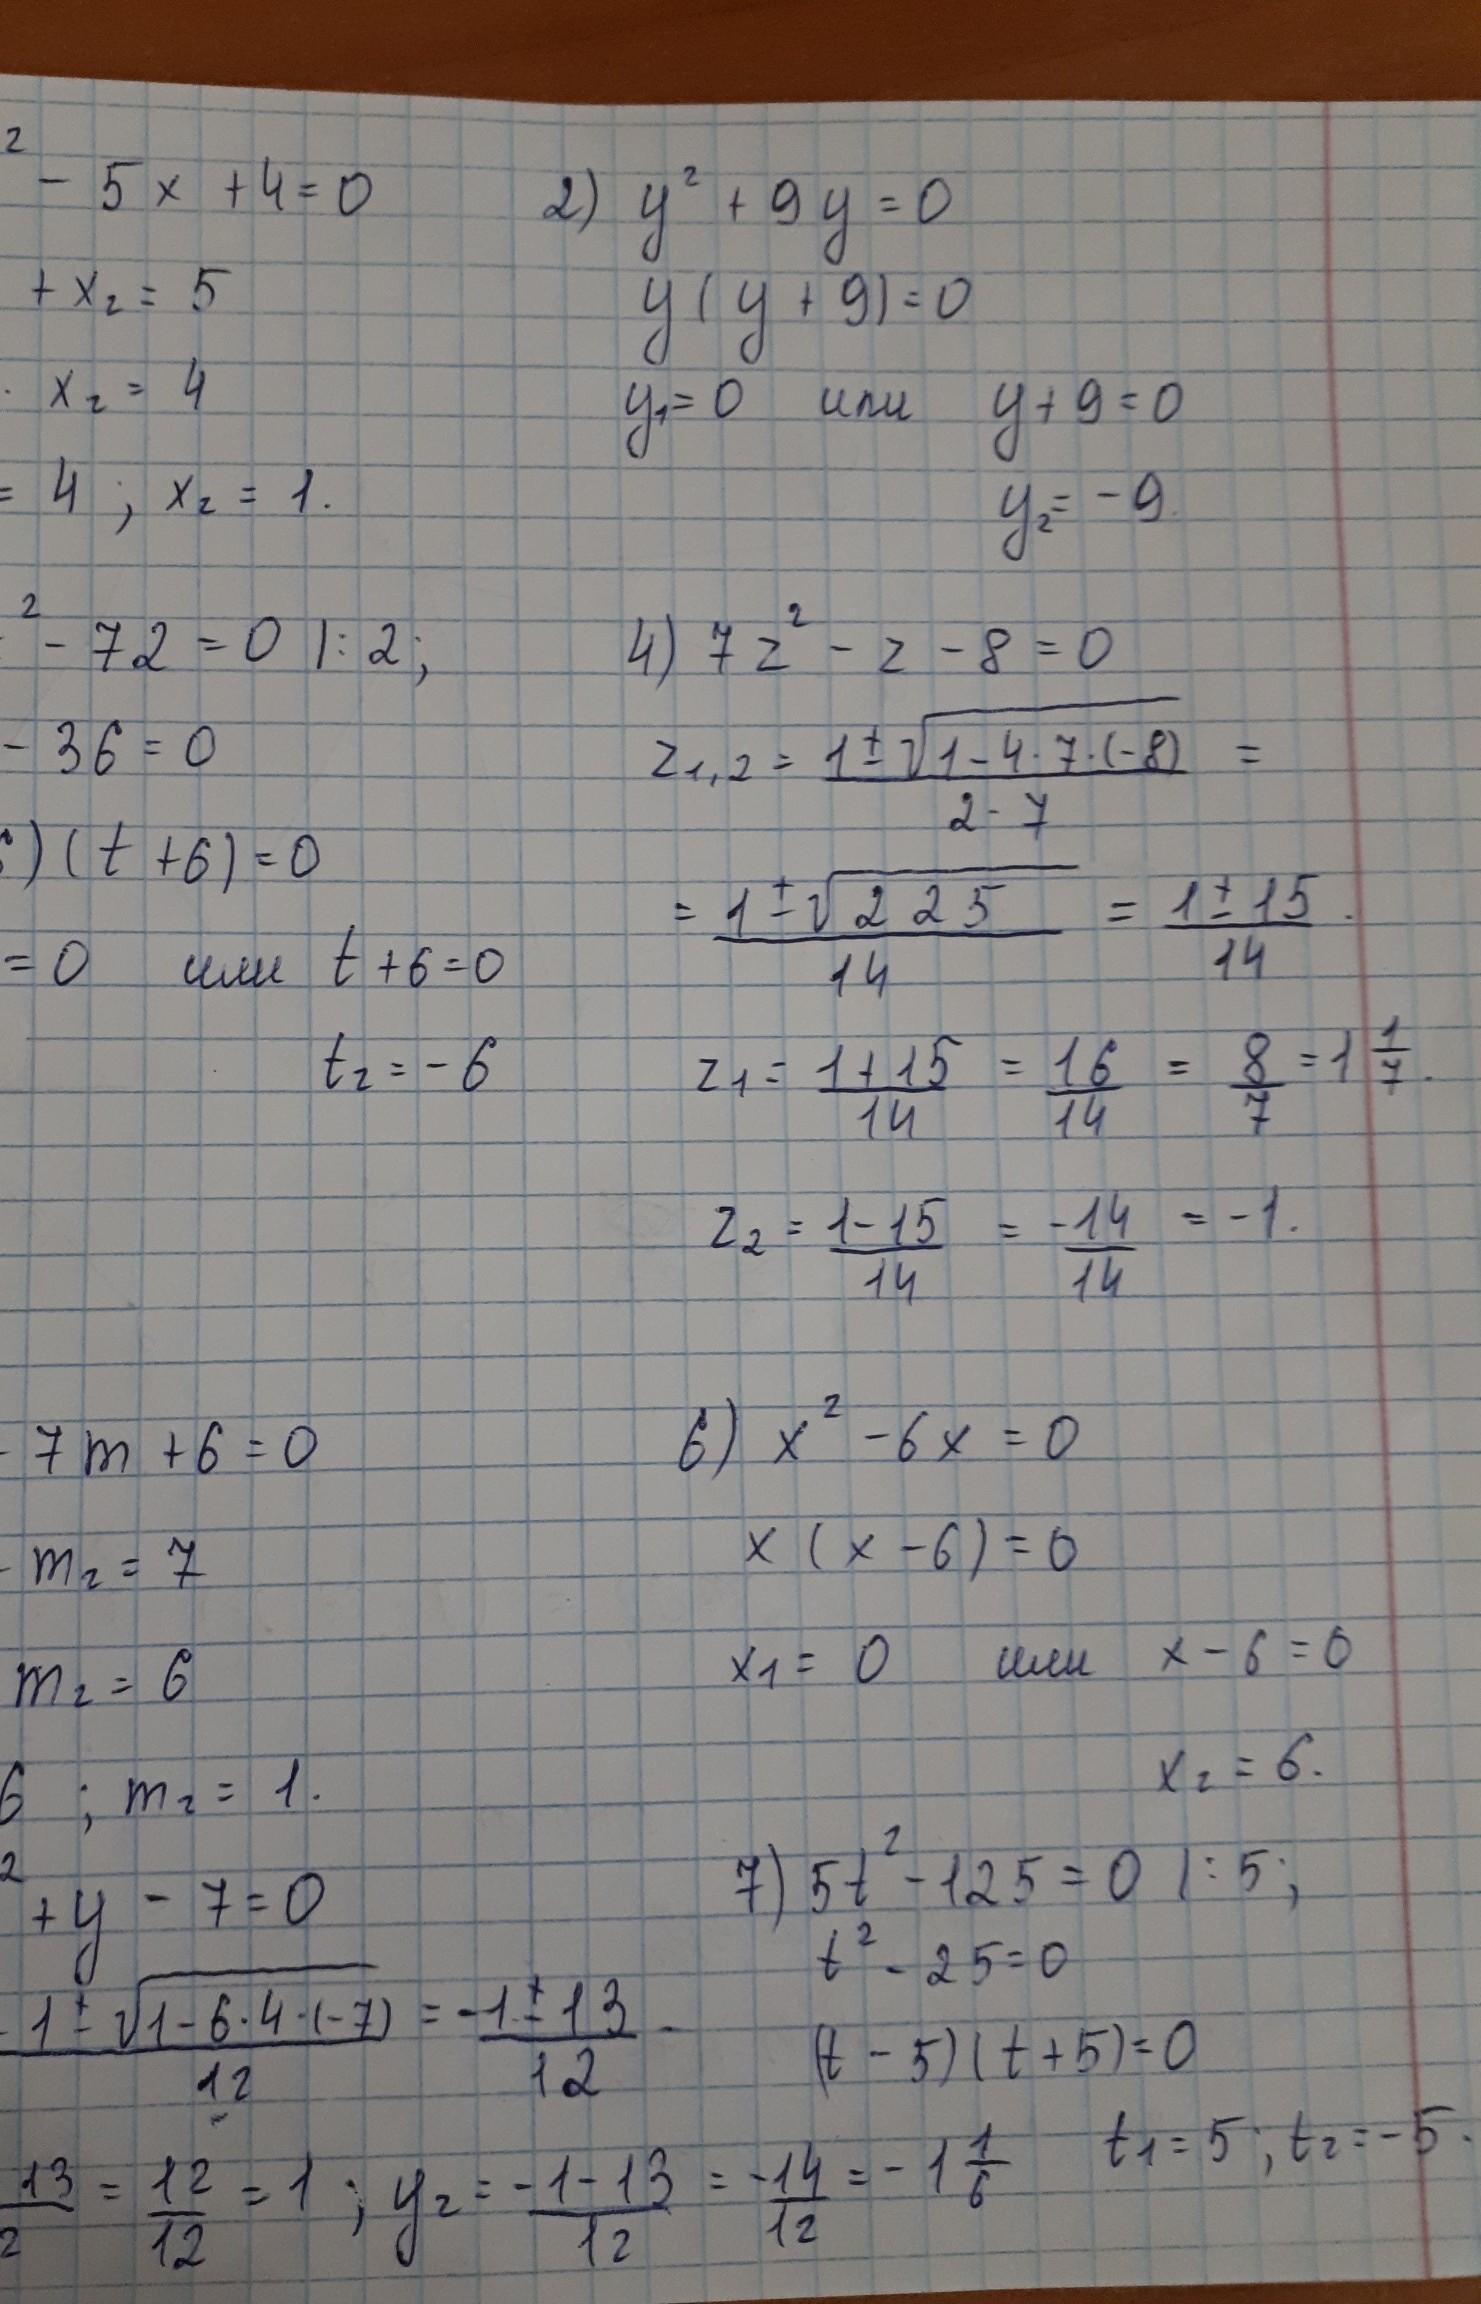 ² - 5x + 4 = 0
+ x₂ = 5
· x₂ = 4
= 4 ; x₂ = 1.
2) y² + 9y = 0
y(y + 9) = 0
y₁ = 0 или y + 9 = 0
y₂ = -9.
² - 72 = 0 |: 2;
- 36 = 0
)(t + 6) = 0
= 0 или t + 6 = 0
t₂ = -6
4) 7z² - z - 8 = 0
z₁,₂ = (1 ± √(1 - 4 · 7 · (-8))) / (2 · 7) =
= (1 ± √225) / 14 = (1 ± 15) / 14.
z₁ = (1 + 15) / 14 = 16/14 = 8/7 = 1 1/7.
z₂ = (1 - 15) / 14 = -14/14 = -1.
- 7m + 6 = 0
m₂ = 7
m₂ = 6
6 ; m₂ = 1.
6) x² - 6x = 0
x(x - 6) = 0
x₁ = 0 или x - 6 = 0
x₂ = 6.
² + y - 7 = 0
-1 ± √(1 - 6 · 4 · (-7)) / 12 = (-1 ± 13) / 12.
13 / 2 = 12/12 = 1 ; y₂ = (-1 - 13) / 12 = -14/12 = -1 1/6
7) 5t² - 125 = 0 |: 5;
t² - 25 = 0
(t - 5)(t + 5) = 0
t₁ = 5 ; t₂ = -5.